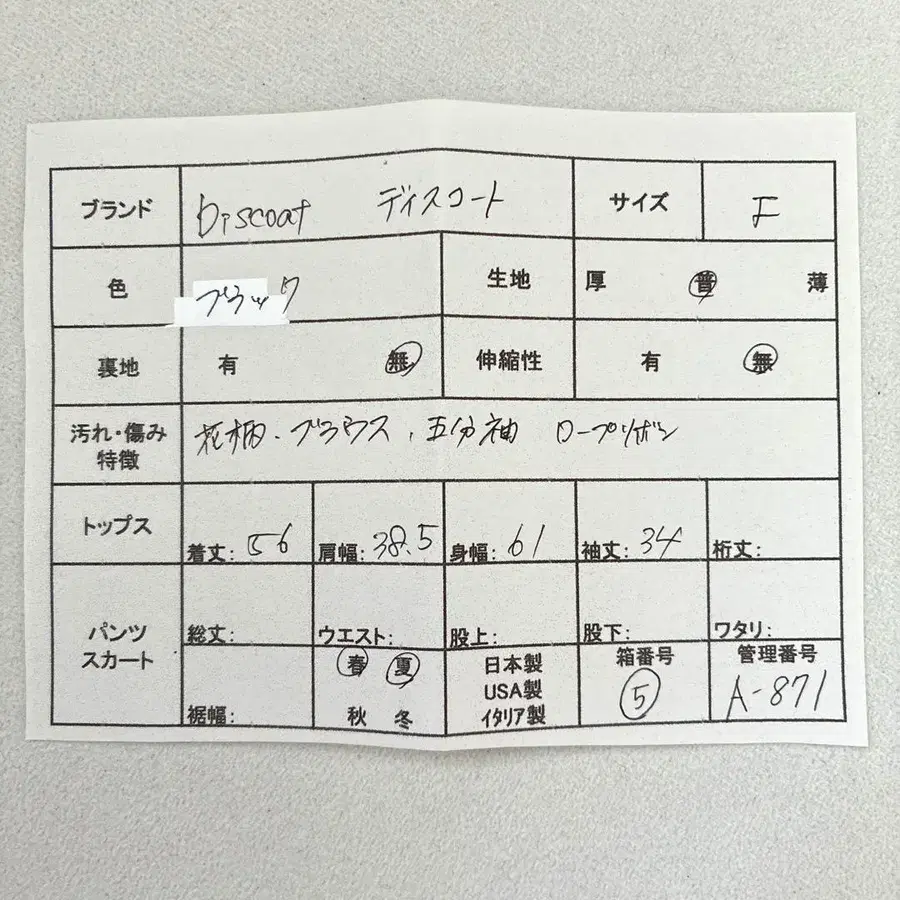 ブランド Discoat ディスコート サイズ F
色 ブラック 生地 厚 普 薄
裏地 有 無 伸縮性 有 無
汚れ・傷み 花柄.ブラウス、五分袖 ロープリボン
特徴
トップス 着丈: 56 肩幅: 38.5 身幅: 61 袖丈: 34 裄丈:
パンツ 総丈: ウエスト: 股上: 股下: ワタリ:
スカート 春 夏 日本製 箱番号 管理番号
USA製 ⑤ A-871
裾幅: 秋 冬 イタリア製